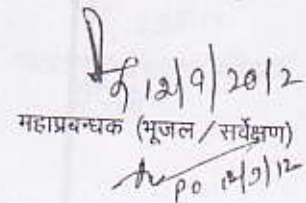 12/9/2012
महाप्रबन्धक (भूजल / सर्वेक्षण)
PO 12/9/12